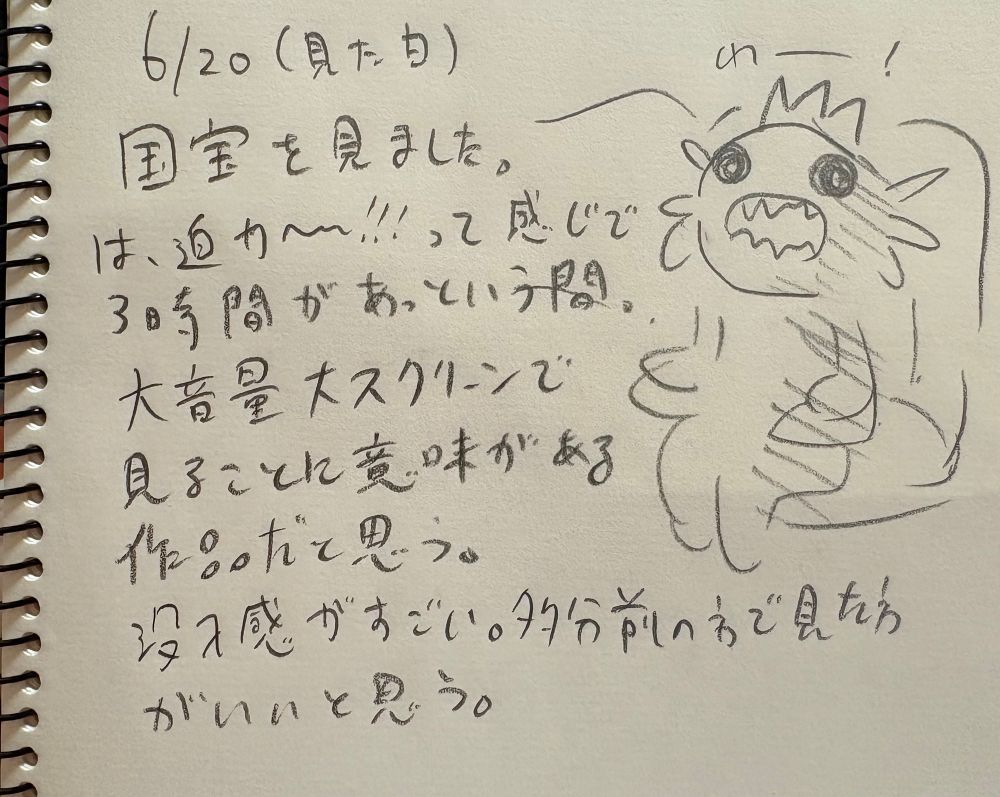 6/20(見た日)
わー!
国宝を見ました。
は、迫力〜〜!!!って感じで
3時間があっという間。
大音量大スクリーンで
見ることに意味がある
作品。だと思う。
没入感がすごい。多分前の方で見た方
がいいと思う。